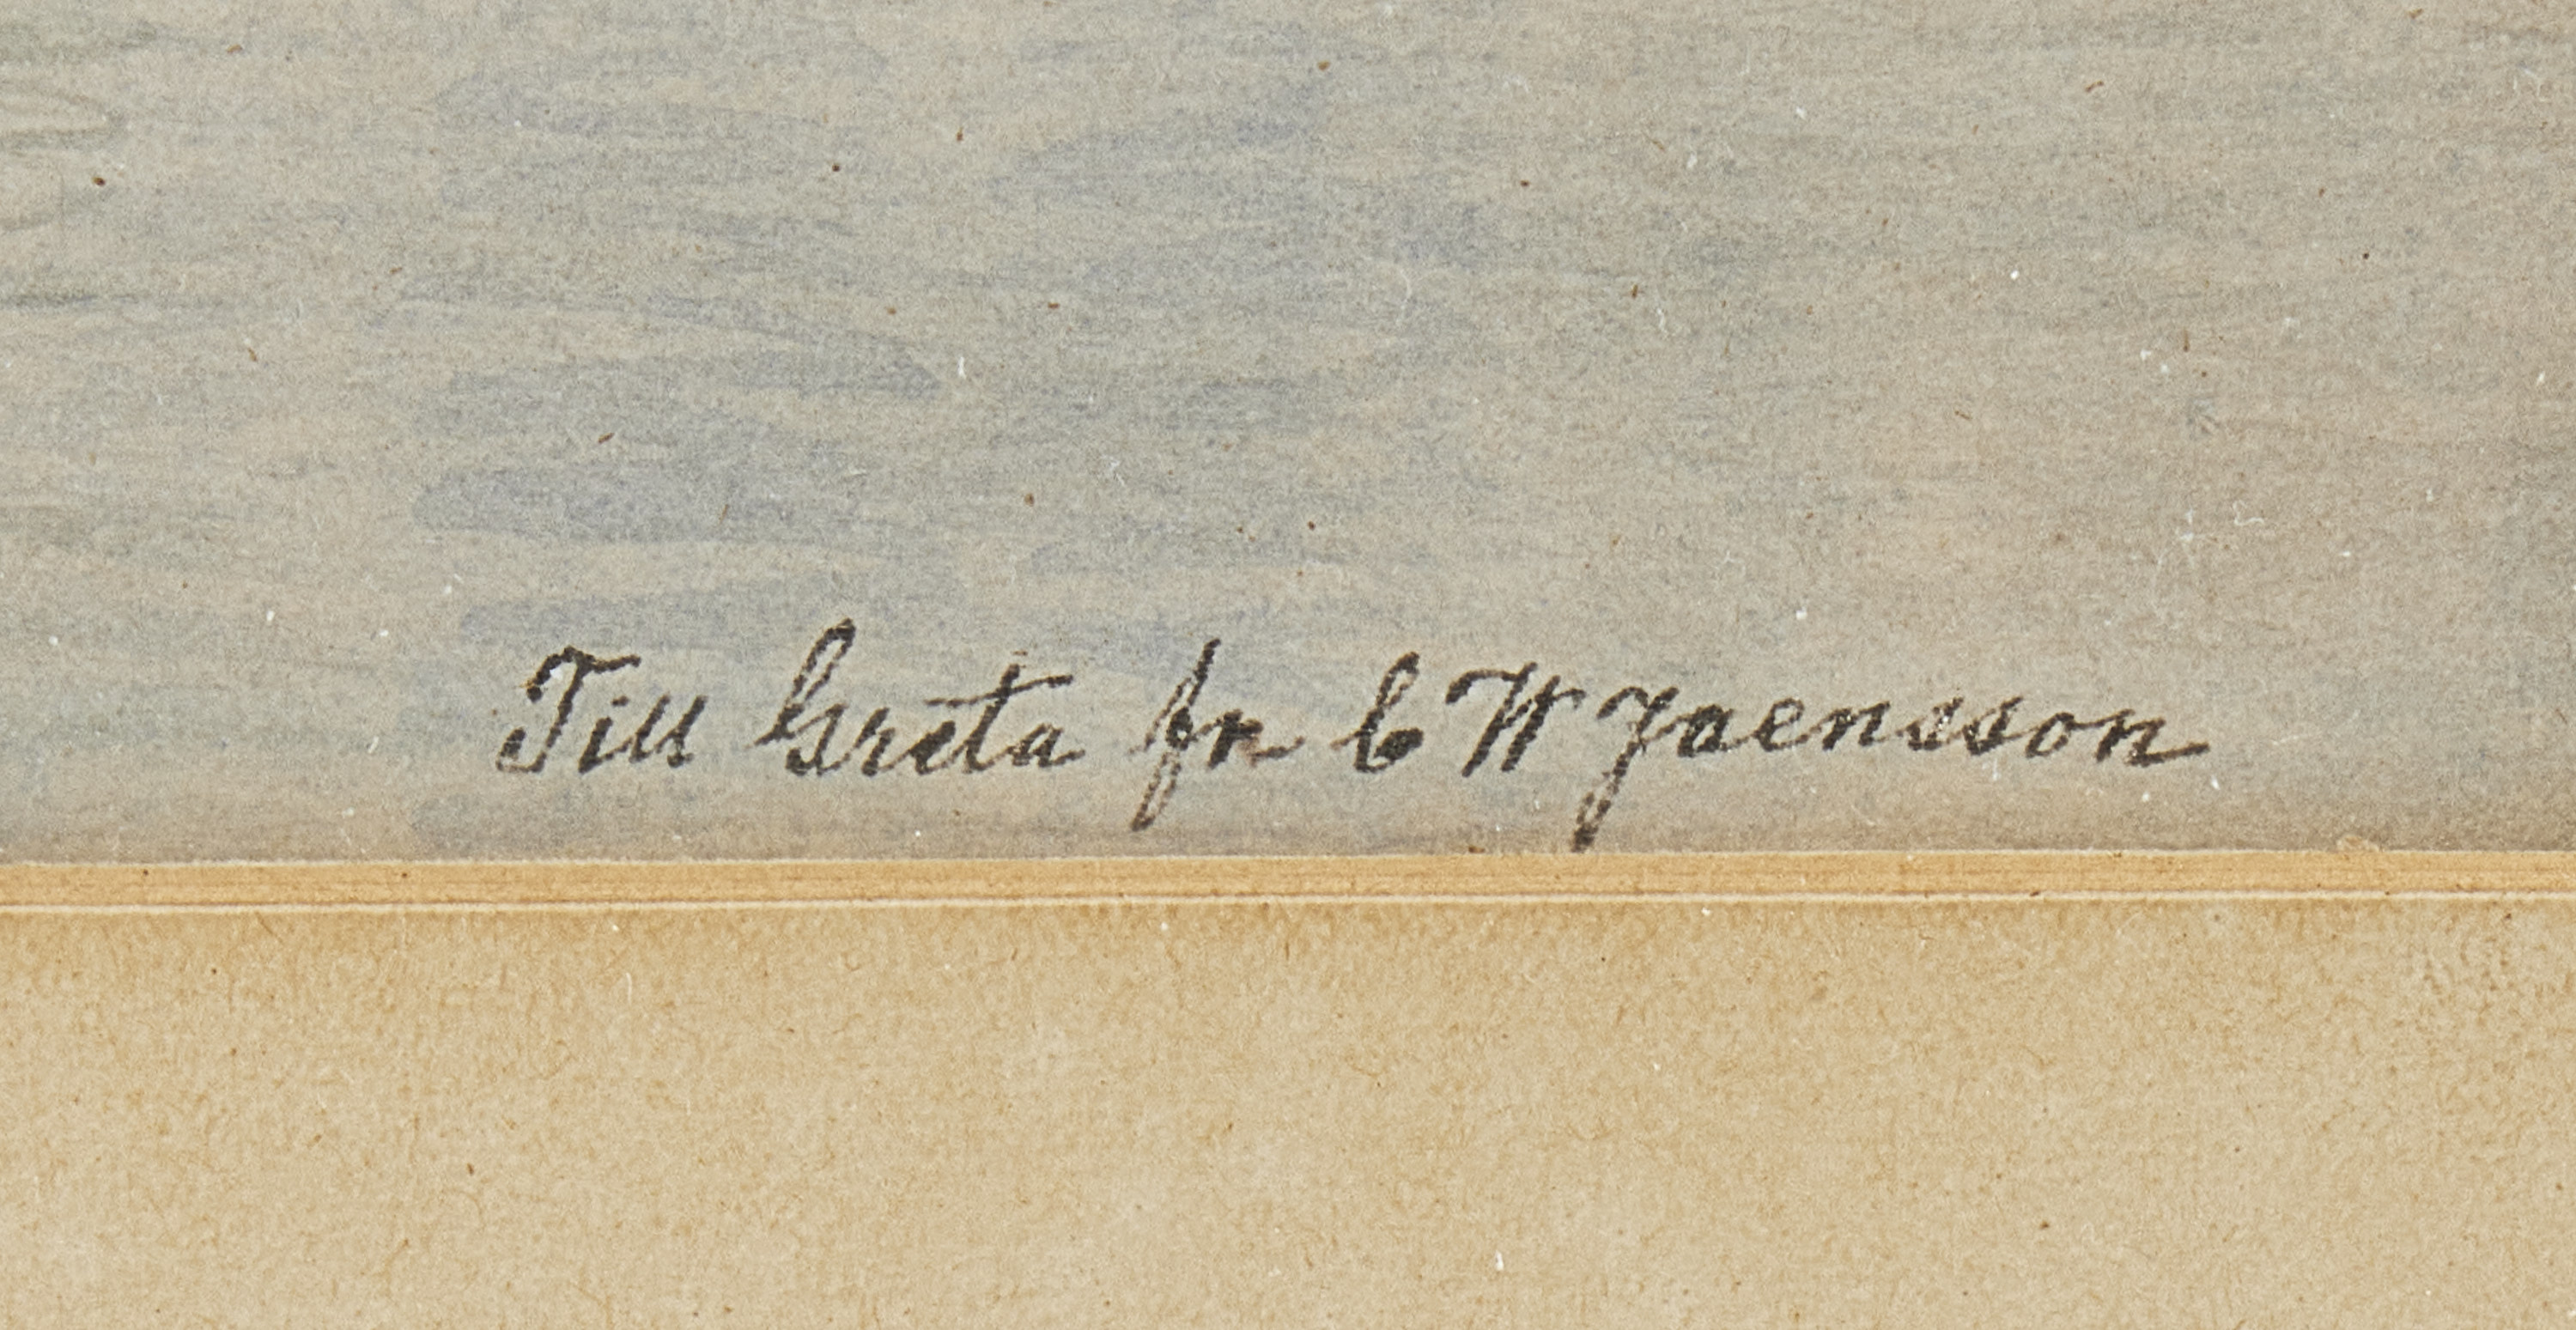 Till Greta fr C W Jaensson